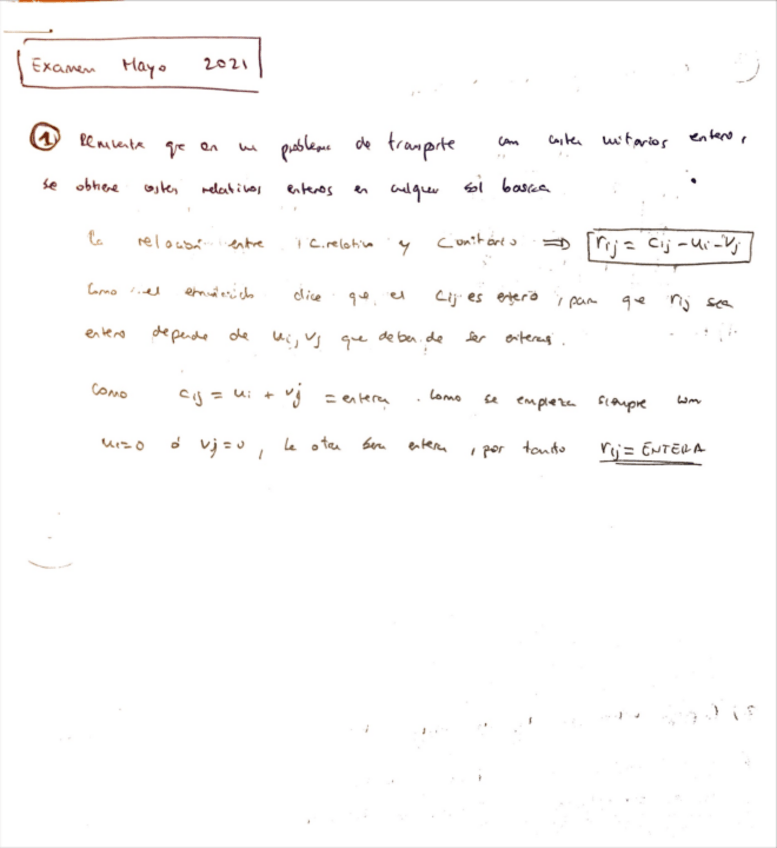 Examen Mayo 2021
① Demuestra que en un problema de transporte con costes unitarios enteros,
se obtiene costes relativos enteros en cualquier sol basica
la relación entre C.relativo y C unitario ⇒ rij = cij - ui - vj
Como el enunciado dice que el cij es entero, para que rij sea
entero depende de ui, vj que deben de ser enteras.
Como cij = ui + vj = entera. Como se empieza siempre con
ui=0 ó vj=0, la otra sera entera, por tanto rij = ENTERA